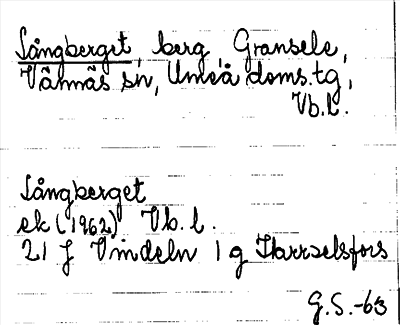 Långberget, berg, Gransele,
Vännäs sn, Umeå doms.tg,
Vb.l.
Långberget
ek (1962) Vb. l.
21 J Vindeln 1 g Harrselsfors
G.S.-63